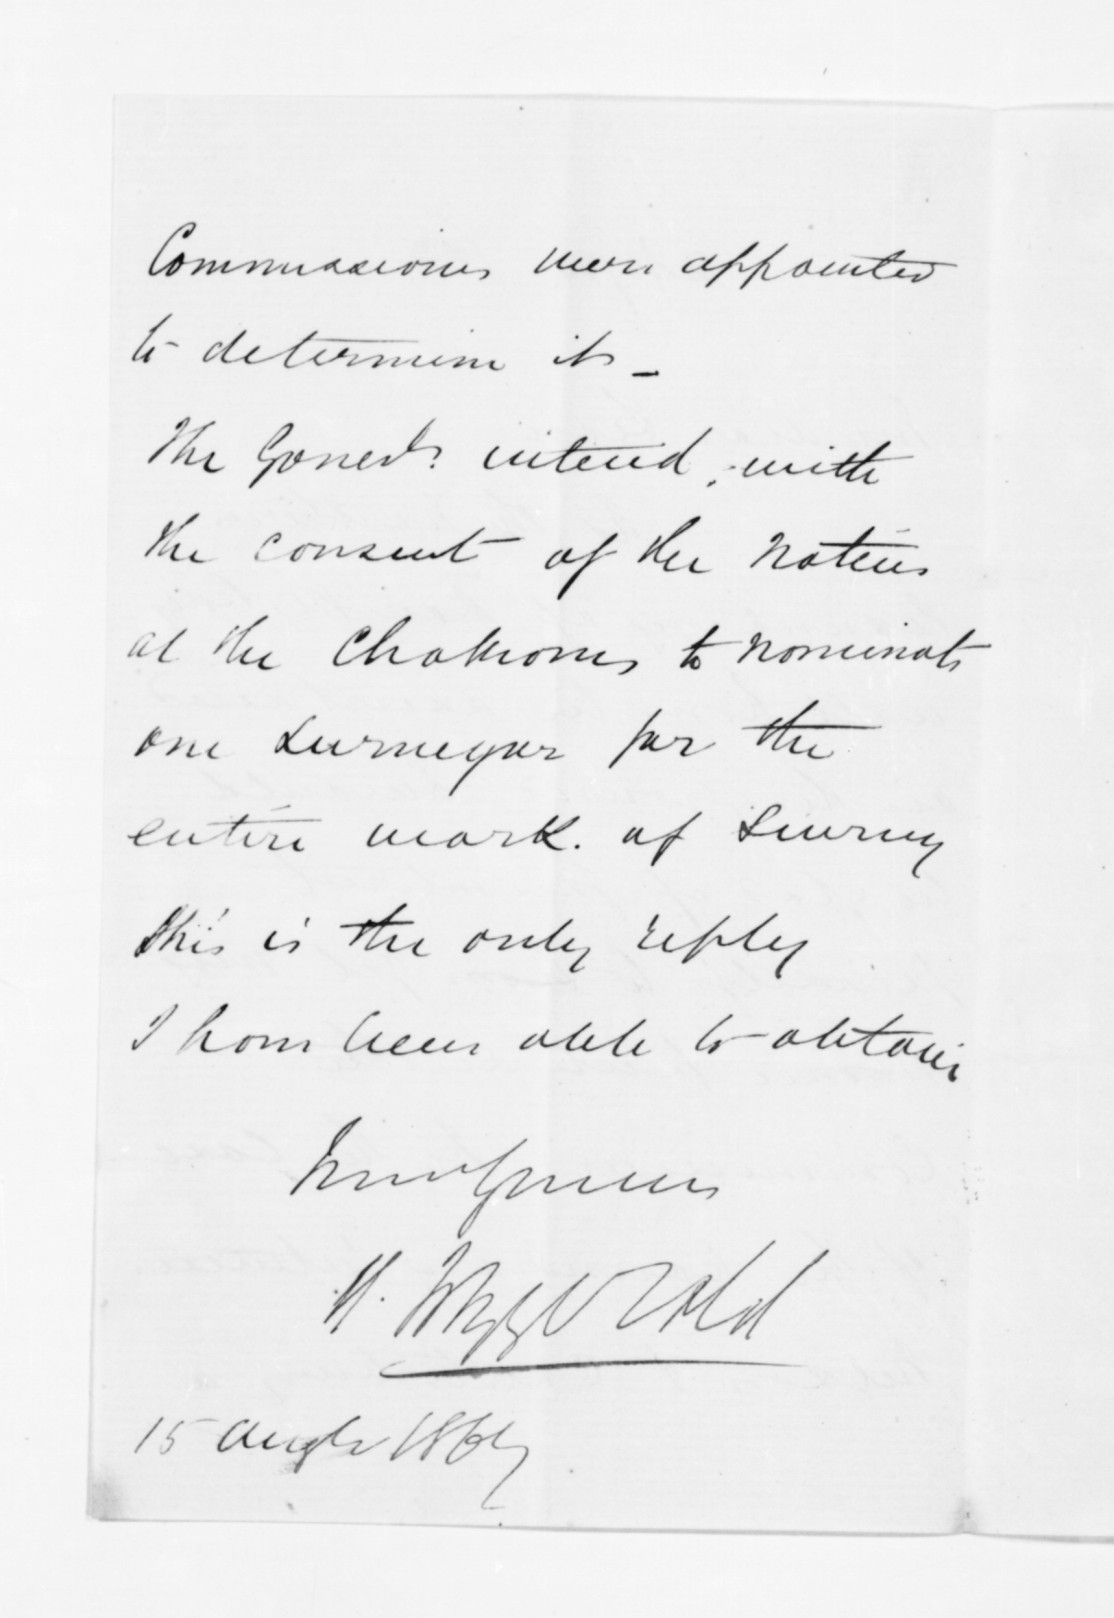 Commissioners were appointed
to determine it _
The Govert. intend, with
the consent of the Natives
at the Chathams to nominate
one Surveyor for the
entire work. of Survey
this is the only reply
I have been able to obtain
H.
15 Augt 1867